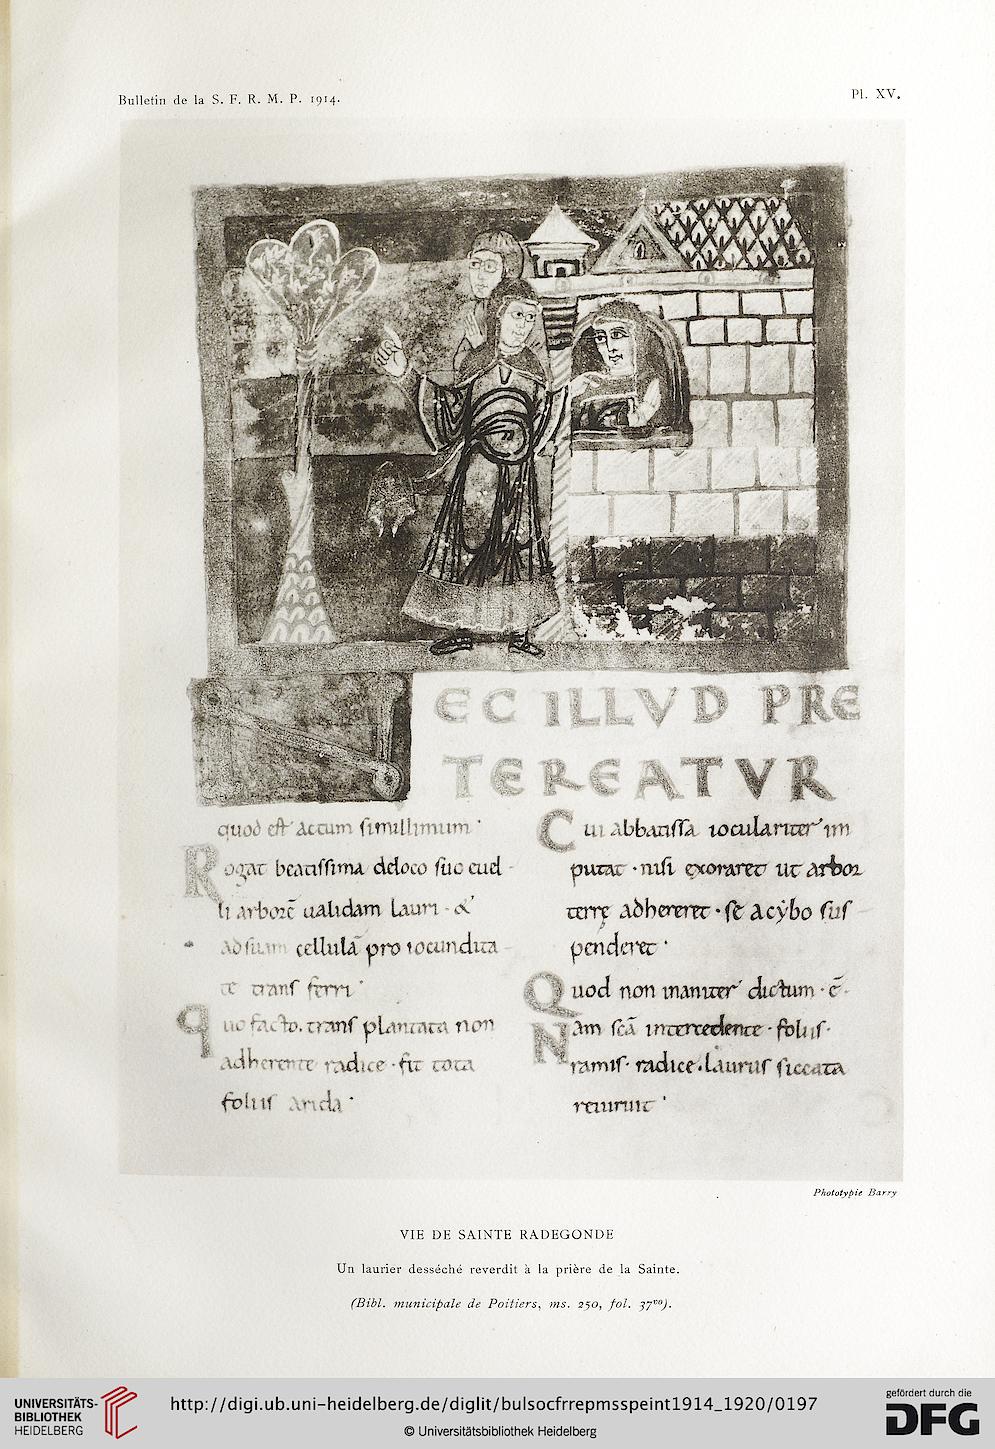 Bulletin de la S. F. R. M. P. 1914.
Pl. XV.
EC ILLVD PRE
TEREATVR
quod est actum simillimum
Rogat beatissima de loco suo euel
li arborē ualidam lauri · &
ad suam cellulā pro iocundita
te transferri
Quo facto. transplantata non
adherente radice · fit tota
foliis arida
Cui abbatissa ioculariter im
putat · nisi exoraret ut arbor
terrę adhereret · se a cybo sus
penderet
Quod non inaniter dictum · ē ·
Nam scā intercedente · foliis ·
ramis · radice · laurus siccata
reuiruit
Phototypie Barry
VIE DE SAINTE RADEGONDE
Un laurier desséché reverdit à la prière de la Sainte.
(Bibl. municipale de Poitiers, ms. 250, fol. 37vo).
UNIVERSITÄTS-
BIBLIOTHEK
HEIDELBERG
http://digi.ub.uni-heidelberg.de/diglit/bulsocfrrepmsspeint1914_1920/0197
© Universitätsbibliothek Heidelberg
gefördert durch die
DFG